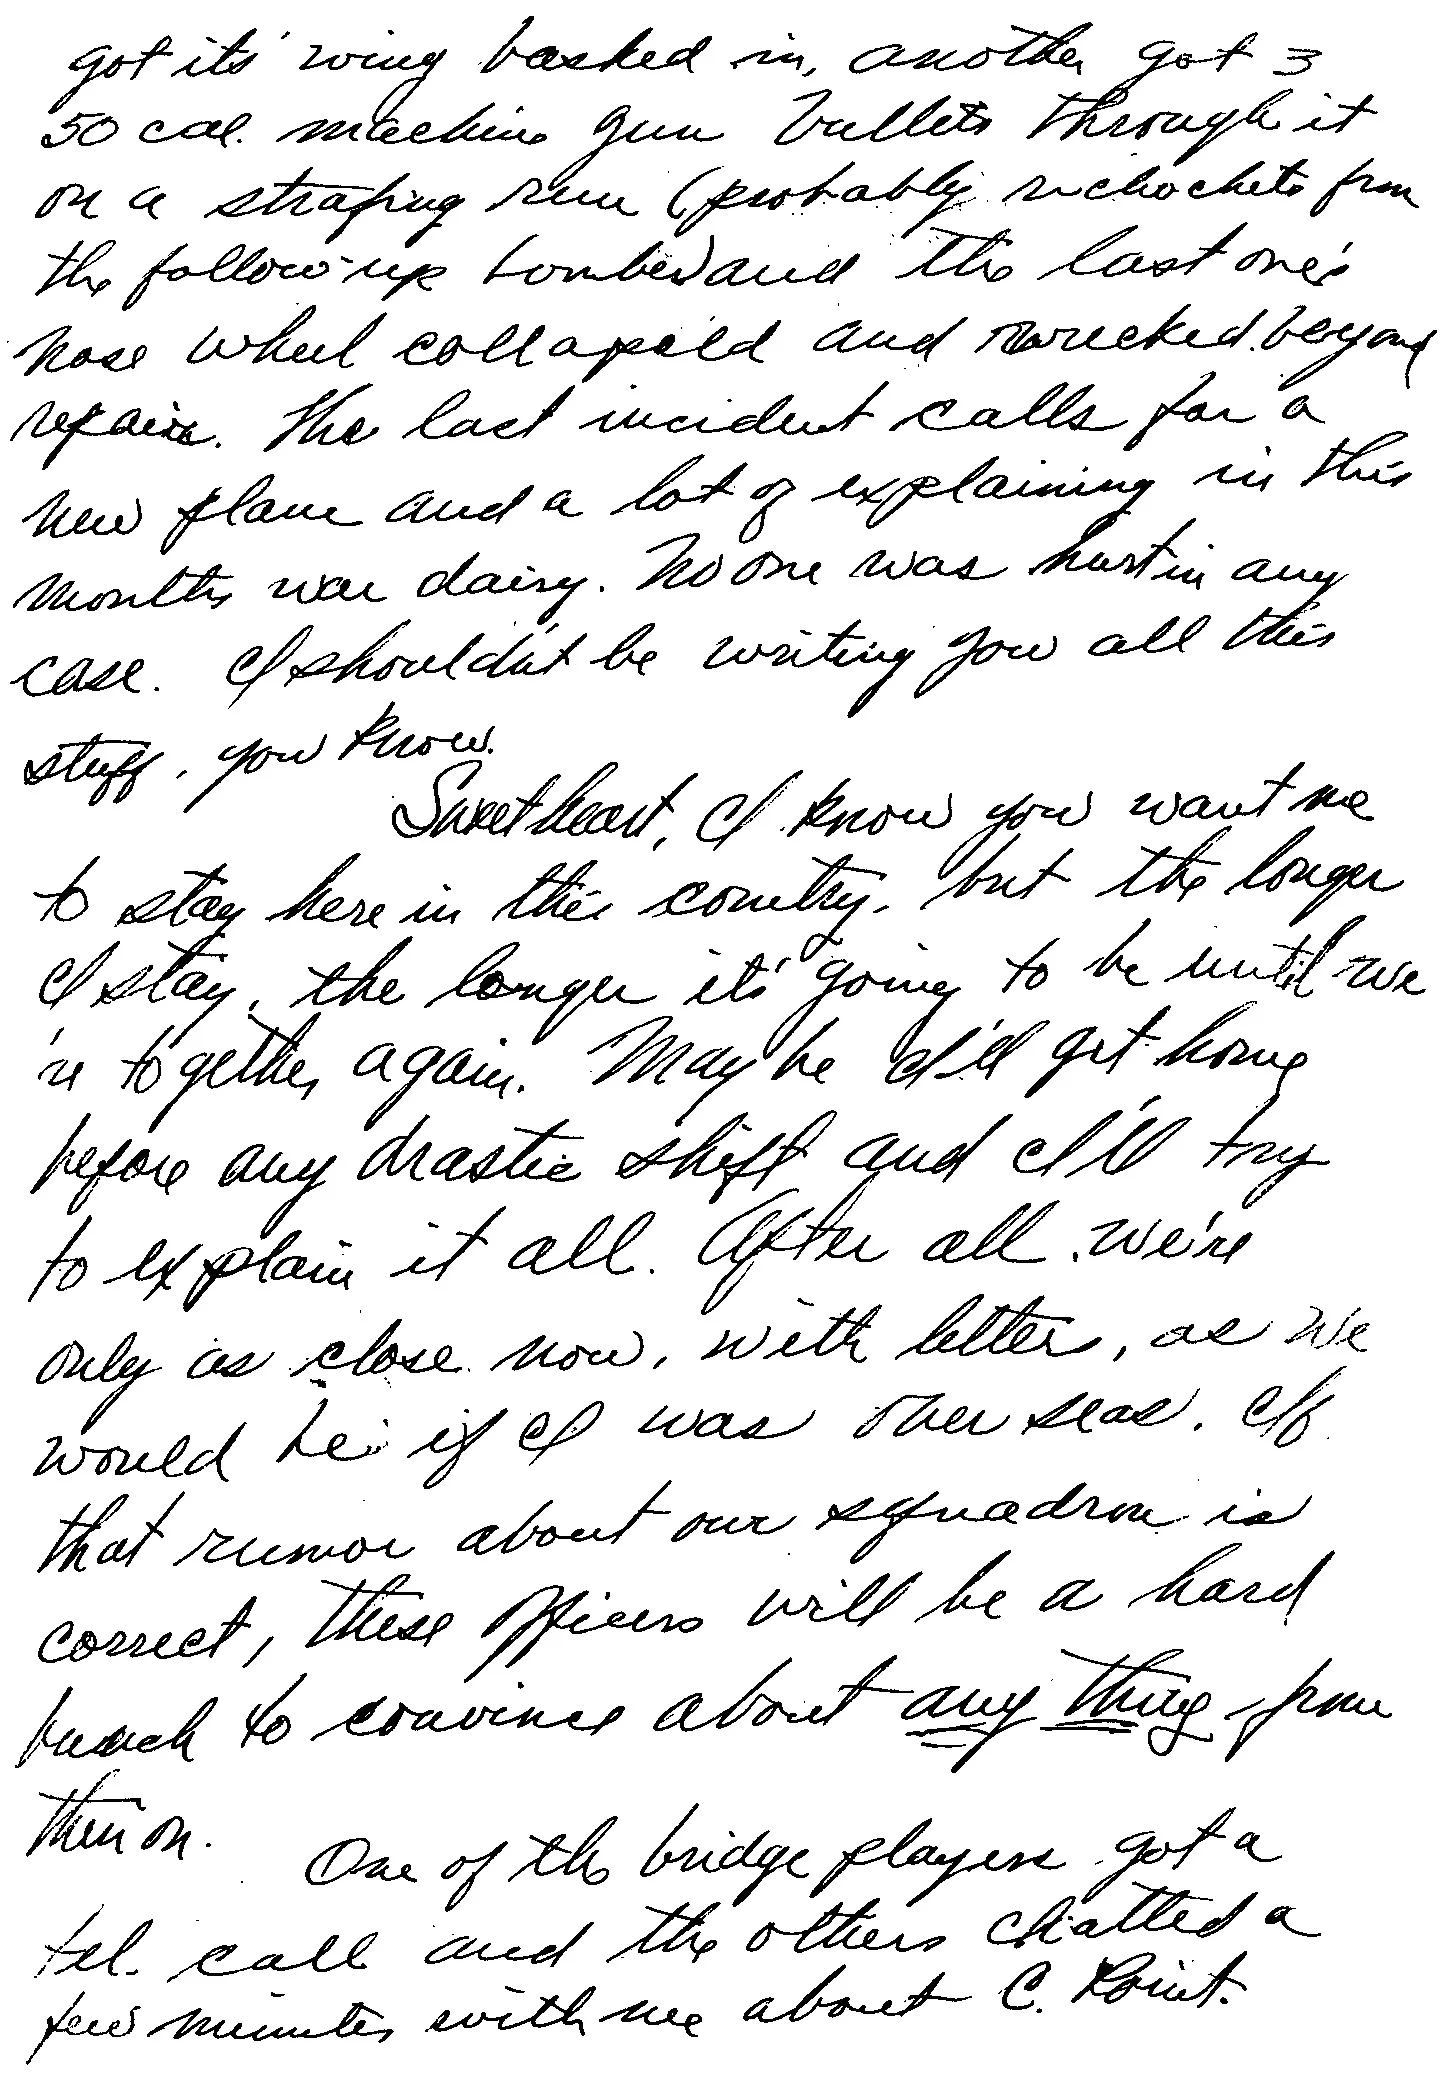 got its' wing bashed in, another got 3
50 cal. machine gun bullets through it
on a strafing run (probably richochets from
the follow-up bomber) and the last one's
nose wheel collapsed and wrecked beyond
repair. The last incident calls for a
new plane and a lot of explaining in this
months war dairy. No one was hurt in any
case. I shouldn't be writing you all this
stuff, you know.
Sweetheart, I know you want me
to stay here in this country, but the longer
I stay, the longer it's going to be until we
're together again. Maybe I'll get home
before any drastic shift and I'll try
to explain it all. After all, we're
only as close now, with letters, as we
would be if I was over seas. If
that rumor about our squadron is
correct, these officers will be a hard
bunch to convince about any thing from
then on.
One of the bridge players got a
tel. call and the others chatted a
few minutes with me about C. Point.